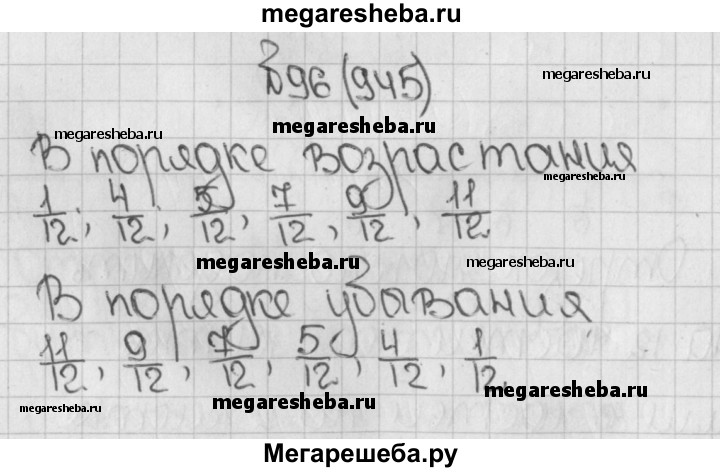 megaresheba.ru
№96 (945)
megaresheba.ru
megaresheba.ru
megaresheba.ru
В порядке возрастания
megaresheba.ru
1/12, 4/12, 5/12, 7/12, 9/12, 11/12.
megaresheba.ru
megaresheba.ru
В порядке убывания
11/12, 9/12, 7/12, 5/12, 4/12, 1/12.
megaresheba.ru
megaresheba.ru
megaresheba.ru
Мегарешеба.ру